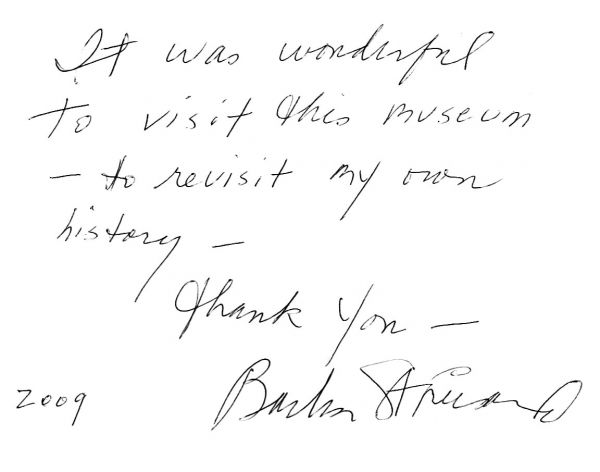 It was wonderful
to visit this museum
— to revisit my own
history —
Thank you —
Barbra Streisand
2009